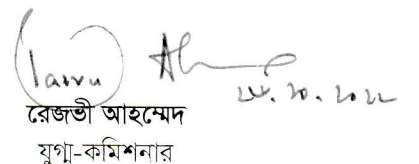 ২৫.১০.২০২২
রেজভী আহম্মেদ
যুগ্ম-কমিশনার